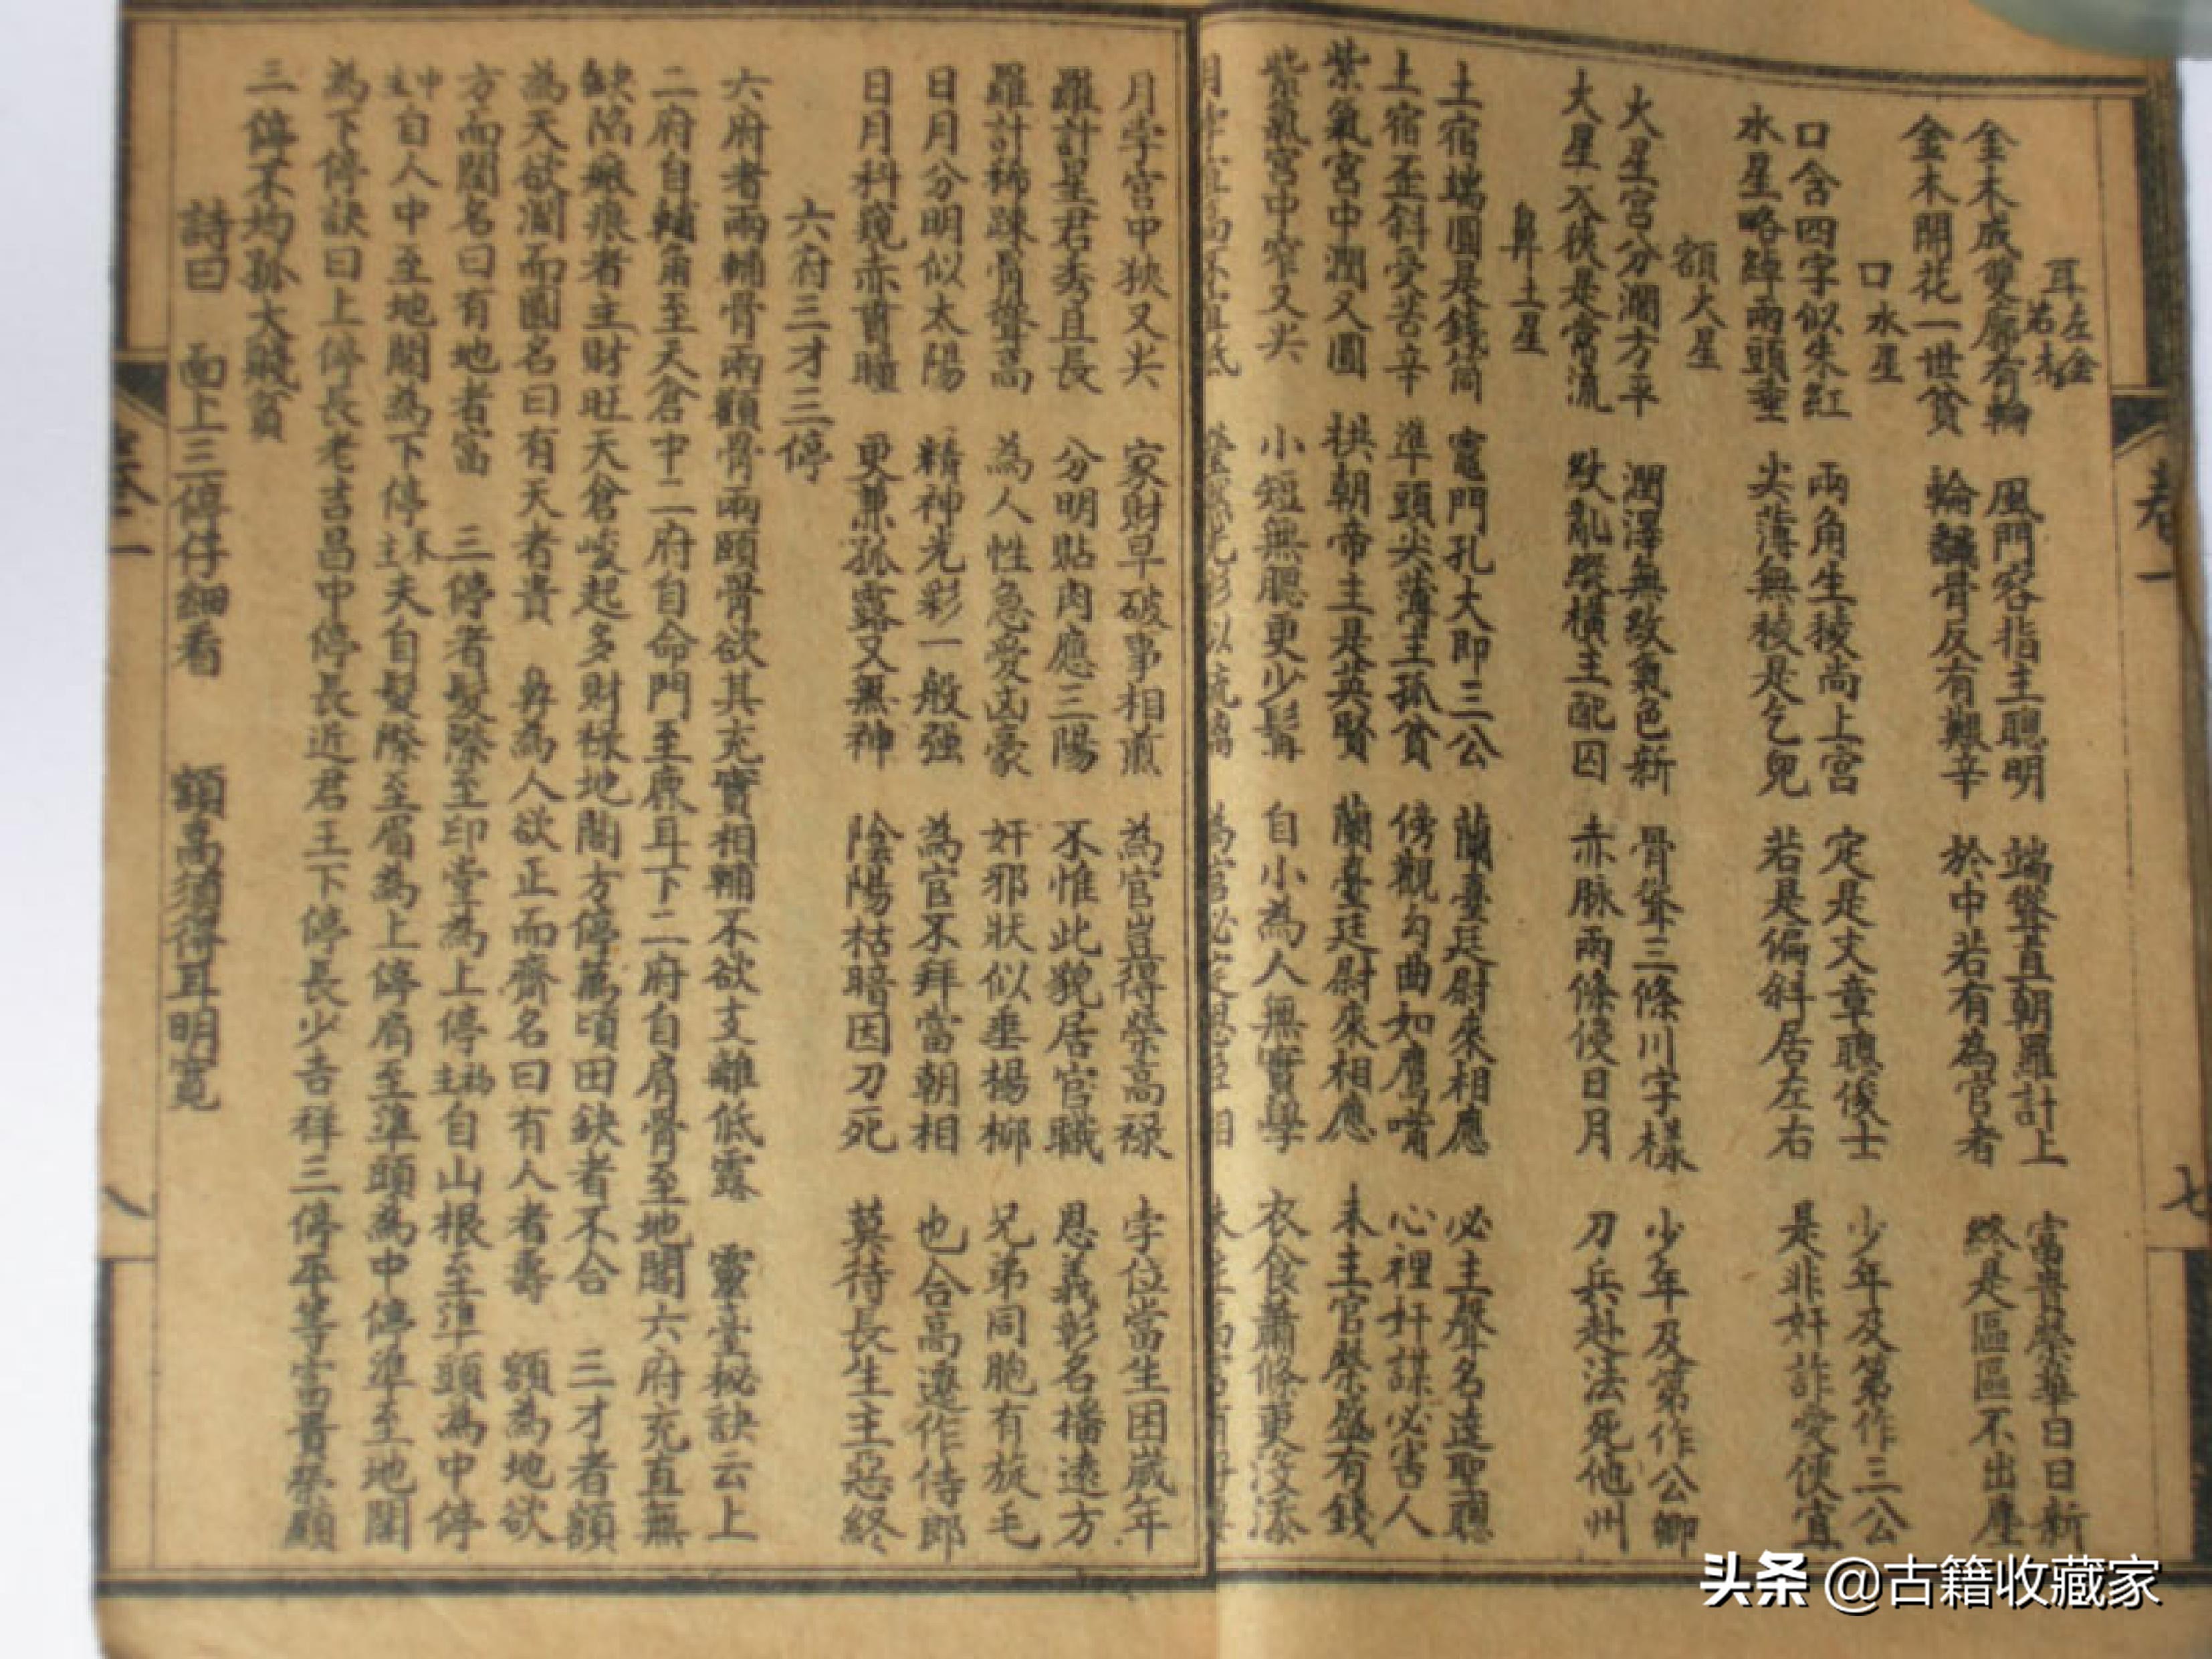 耳 左金 右木
金木成雙廓有輪 風門容指主聰明 端聳直朝羅計上 富貴榮華日日新
金木開花一世貧 輪飜骨反有艱辛 於中若有為官者 終是區區不出塵
口水星
口含四字似朱紅 兩角生稜尚上宮 定是文章聰俊士 少年及第作三公
水星略綽兩頭垂 尖薄無稜是乞兒 若是偏斜居左右 是非奸詐愛便宜
額火星
火星宮分濶方平 潤澤無改氣色新 骨聳三條川字樣 少年及第作公卿
火星入狹是常流 紋亂縱橫主配囚 赤脉兩條侵日月 刀兵赴法死他州
鼻土星
土宿端圓是錢筒 竈門孔大即三公 蘭臺廷尉來相應 必主聲名達聖聰
土宿歪斜受苦辛 準頭尖薄主孤貧 傍觀勾曲如鷹嘴 心裡奸謀必害人
紫氣宮中濶又圓 拱朝帝主是英賢 蘭臺廷尉來相應 末主官榮盛有錢
紫氣宮中窄又尖 小短無腮更少髯 自小為人無實學 衣食蕭條更沒添
月孛宮中狹又尖 家財早破事相煎 為官豈得榮高祿 孛位當生困歲年
羅計星君秀且長 分明貼肉應三陽 不惟此貌居官職 恩義彰名播遠方
羅計稀疎骨聳高 為人性急愛凶豪 奸邪狀似垂楊柳 兄弟同胞有旋毛
日月分明似太陽 精神光彩一般强 為官不拜當朝相 也合高遷作侍郎
日月斜窺赤貫瞳 更兼孤露又無神 陰陽枯暗因刀死 莫待長生主惡終
六府三才三停
六府者兩輔骨兩顴骨兩頤骨欲其充實相輔不欲支離低露 靈臺秘訣云上
二府自輔角至天倉中二府自命門至虎耳下二府自肩骨至地閣六府充直無
缺陷瘢痕者主財旺天倉峻起多財祿地閣方停萬頃田缺者不合 三才者額
為天欲濶而圓名曰有天者貴 鼻為人欲正而齊名曰有人者壽 頦為地欲
方而閣名曰有地者富 三停者髮際至印堂為上停初主自山根至準頭為中停
中主自人中至地閣為下停末主夫自髮際至眉為上停眉至準頭為中停準至地閣
為下停訣曰上停長老吉昌中停長近君王下停長少吉祥三停平等富貴榮顯
三停不均孤夭賤貧
詩曰 面上三停仔細看 額高須得耳明寬
卷一
七
卷一
八
头条 @古籍收藏家